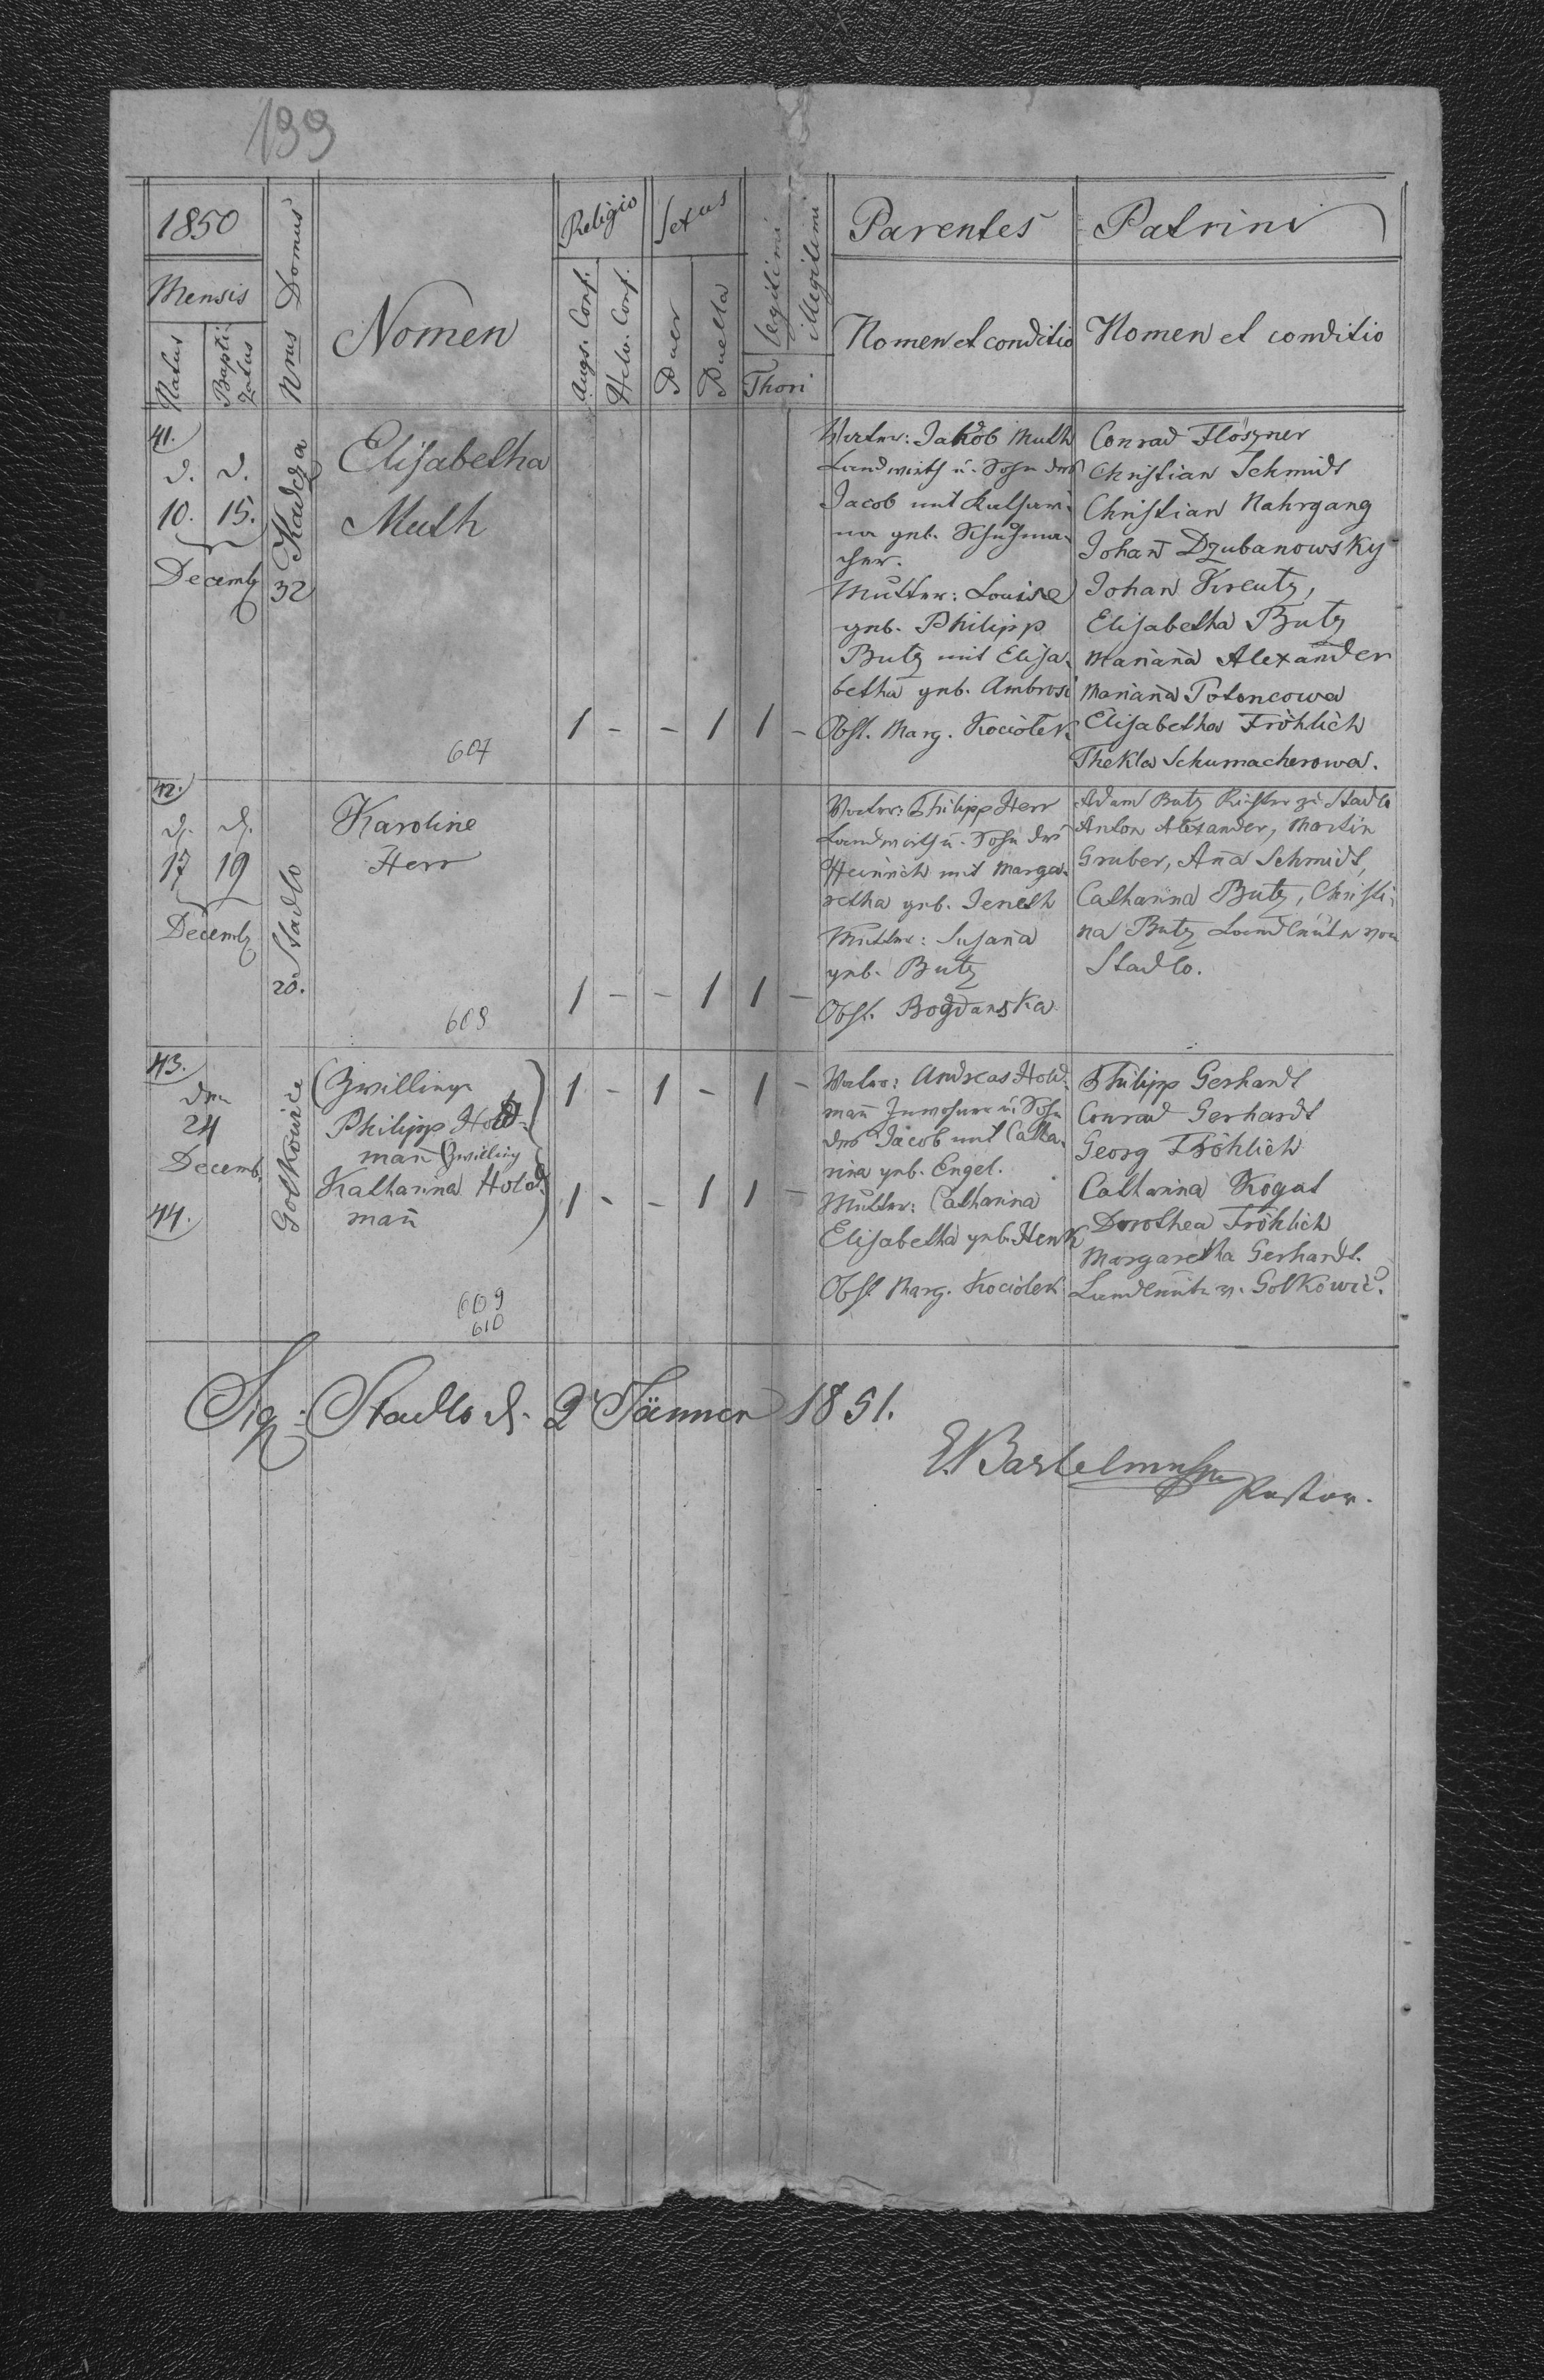 199
1850
Mensis
Natus
Bapti-
zatus
Nrus Domus
Nomen
Religio
Augs. Conf.
Helv. Conf.
Sexus
Puer
Puella
legitimi
illegitimi
Thori
Parentes
Nomen et conditio
Patrini
Nomen et conditio
41.
d. d.
10. 15.
Decemb
Kadcza
32
Elisabetha
Muth
607
1 - - 1 1 -
Vater: Jakob Muth
Landwirth u. Sohn des
Jacob mit Kathari-
na geb. Schuhma-
cher.
Mutter: Louise
geb. Philipp
Butz mit Elisa-
betha geb. Ambrosi
Obst. Marg. Kociołek
Conrad Flöszner
Christian Schmidt
Christian Nahrgang
Johan̄ Dzubanowsky
Johan Kreutz,
Elisabetha Butz
Marian̄a Alexander
Marian̄a Potoncowa
Elisabetha Fröhlich
Thekla Schumacherowa.
42.
d. d.
17 19
Decemb
Stadlo
20.
Karoline
Herr
608
1 - - 1 1 -
Vater: Philipp Herr
Landwirth u. Sohn des
Heinrich mit Marga-
retha geb. Jeneth
Mutter: Susan̄a
geb. Butz
Obst. Bogdanska
Adam Butz Richter zu Stadlo
Anton Alexander, Martin
Gruber, An̄a Schmidt,
Catharina Butz, Christi-
na Butz Landleute von
Stadlo.
43.
den
24
Decemb.
44.
Golkowice
(Zwilling
Philipp Hold-
man̄ (Zwilling
Katharina Hold-
man̄
609
610
1 - 1 - 1 -
1 - - 1 1 -
Vater: Andreas Hold-
man̄ Inwohner u. Sohn
des Jacob mit Catha-
rina geb. Engel.
Mutter: Catharina
Elisabetha geb. Henk
Obst Marg. Kociolek
Philipp Gerhardt
Conrad Gerhardt
Georg Fröhlich
Catharina Rogat
Dorothea Fröhlich
Margaretha Gerhardt.
Landleute v. Golkowic.
Sig. Stadlo d. 2 Jänner 1851.
Bartelmuss
Pastor.